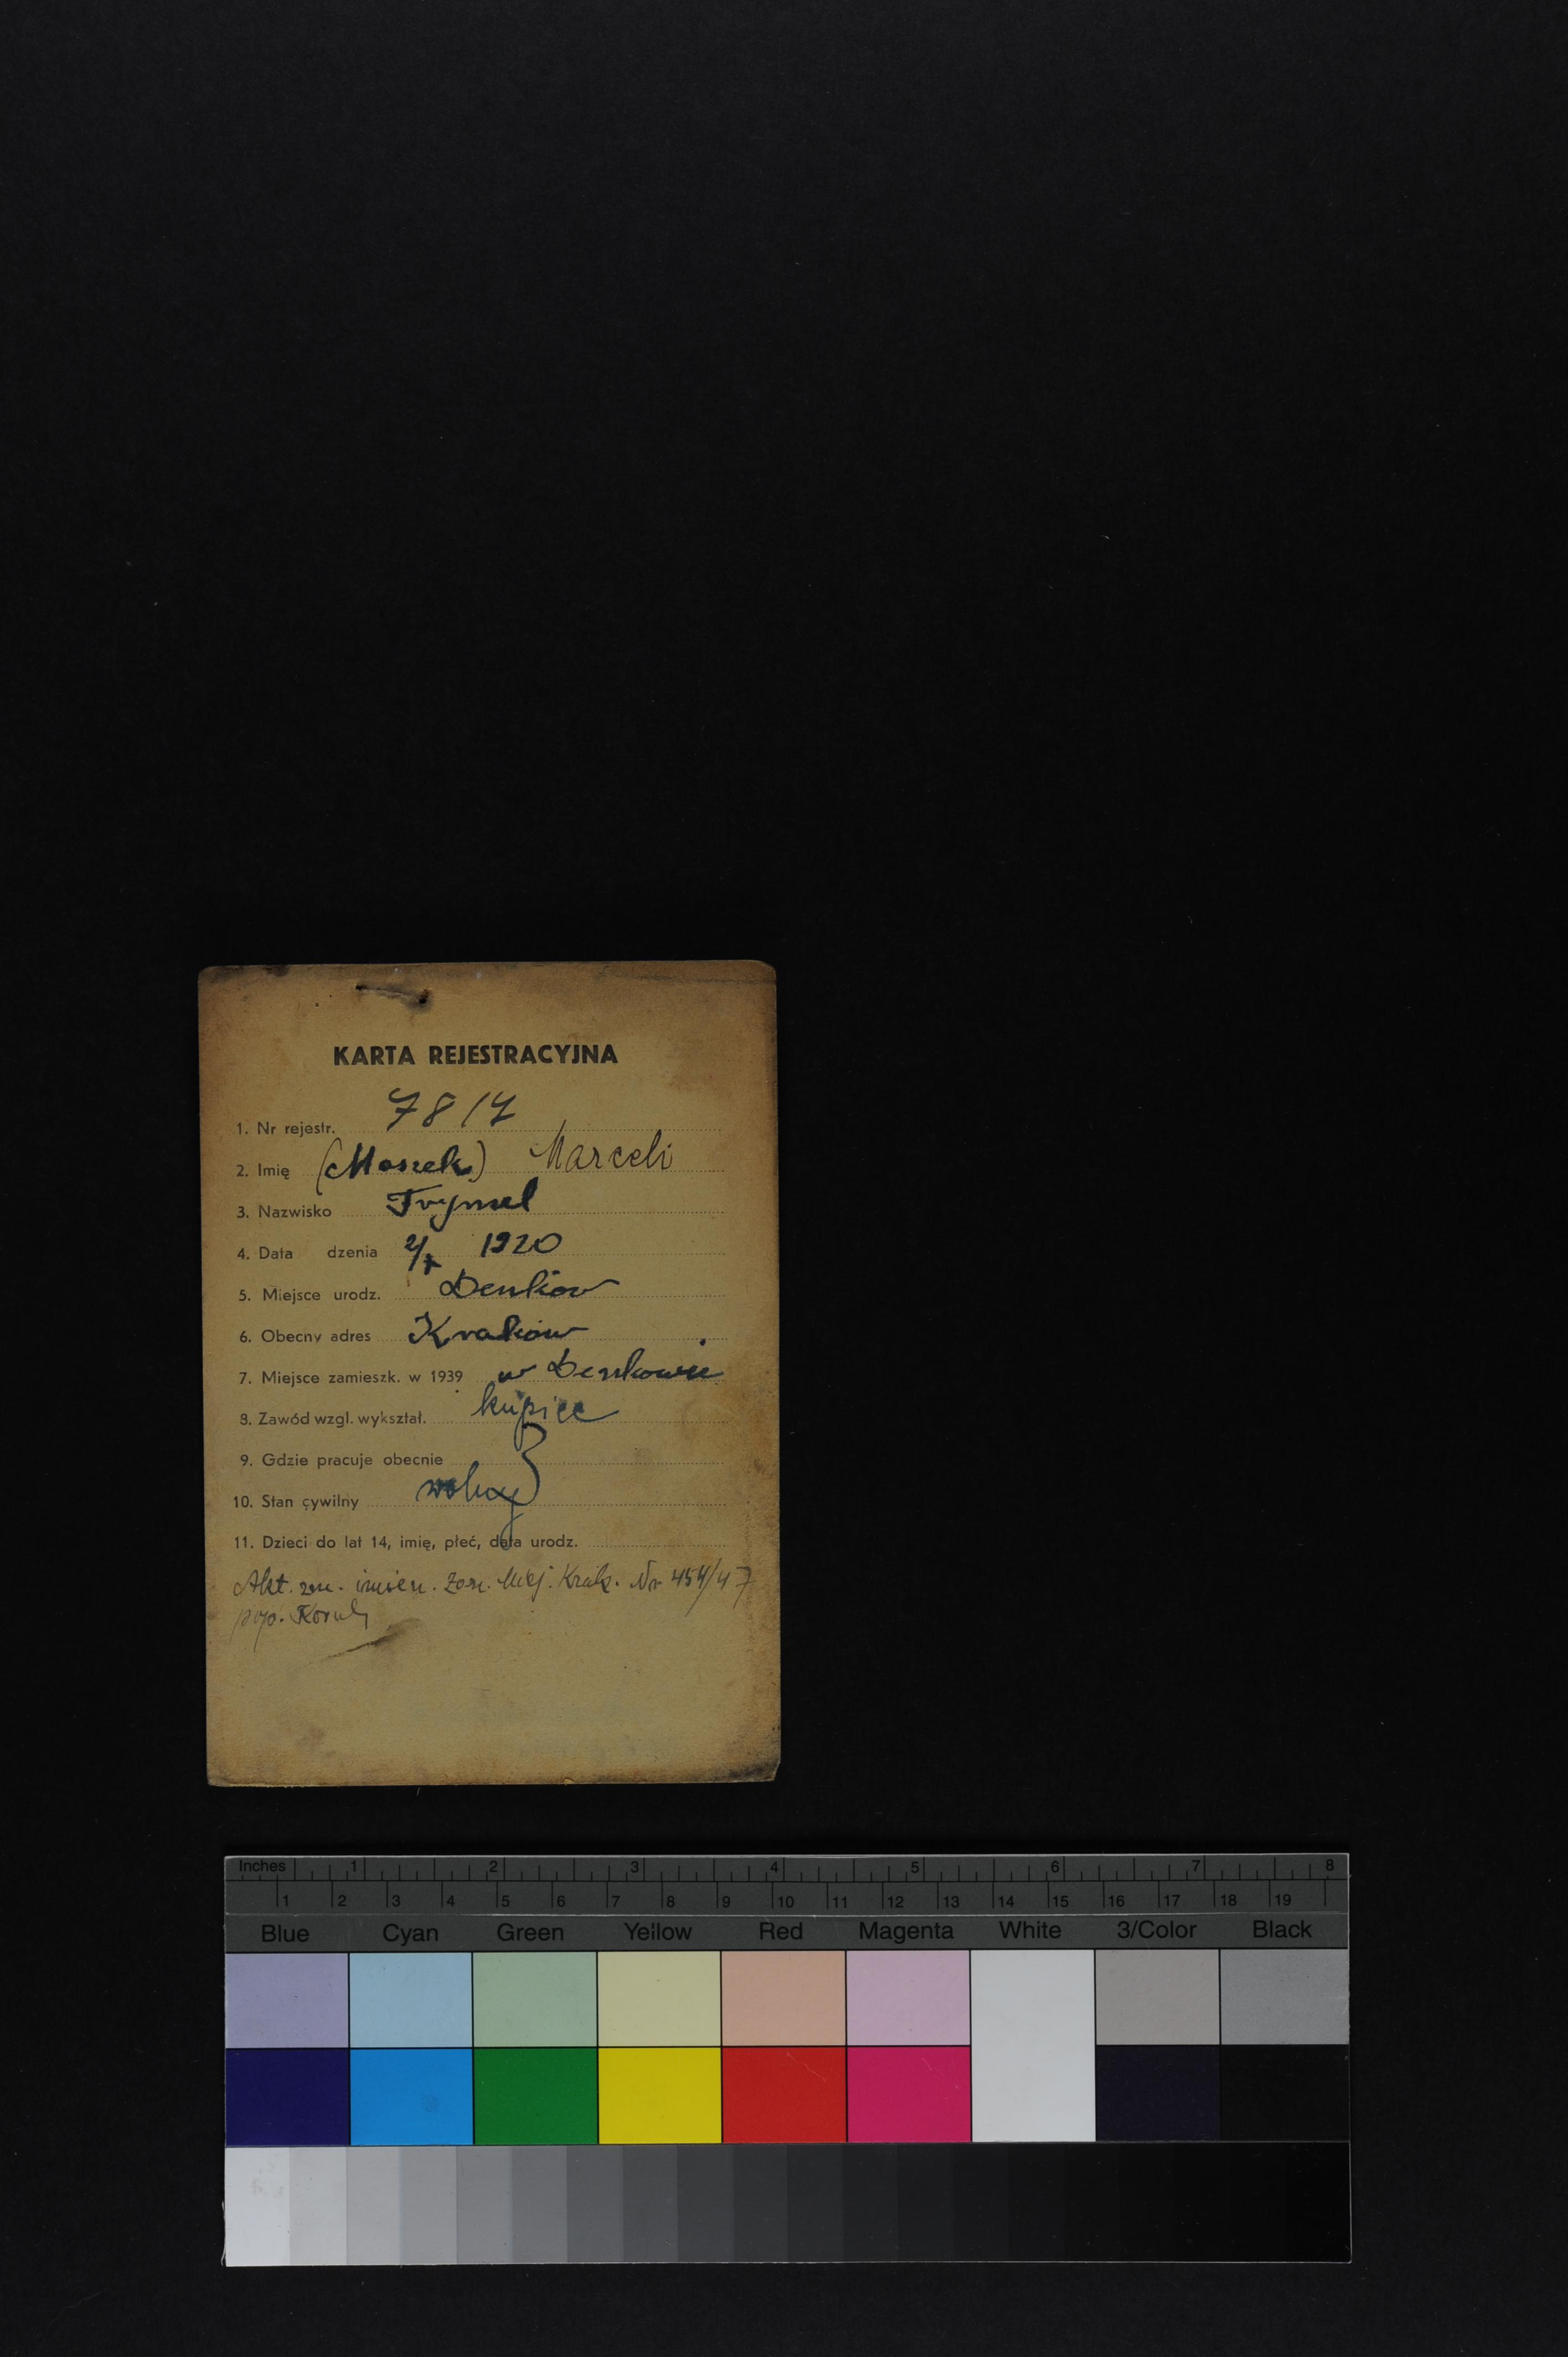 KARTA REJESTRACYJNA
1. Nr rejestr. 7817
2. Imię (Moszek) Marceli
3. Nazwisko Frymel
4. Data dzenia 2/X 1920
5. Miejsce urodz. Denków
6. Obecny adres Kraków
7. Miejsce zamieszk. w 1939 w Denkowie
8. Zawód wzgl. wykształ. kupiec
9. Gdzie pracuje obecnie
10. Stan cywilny wolny
11. Dzieci do lat 14, imię, płeć, data urodz.
Akt. zm. imien. Zarz. Miej. Krak. Nr 454/47
Inches 1 2 3 4 5 6 7 8
1 2 3 4 5 6 7 8 9 10 11 12 13 14 15 16 17 18 19
Blue Cyan Green Yellow Red Magenta White 3/Color Black